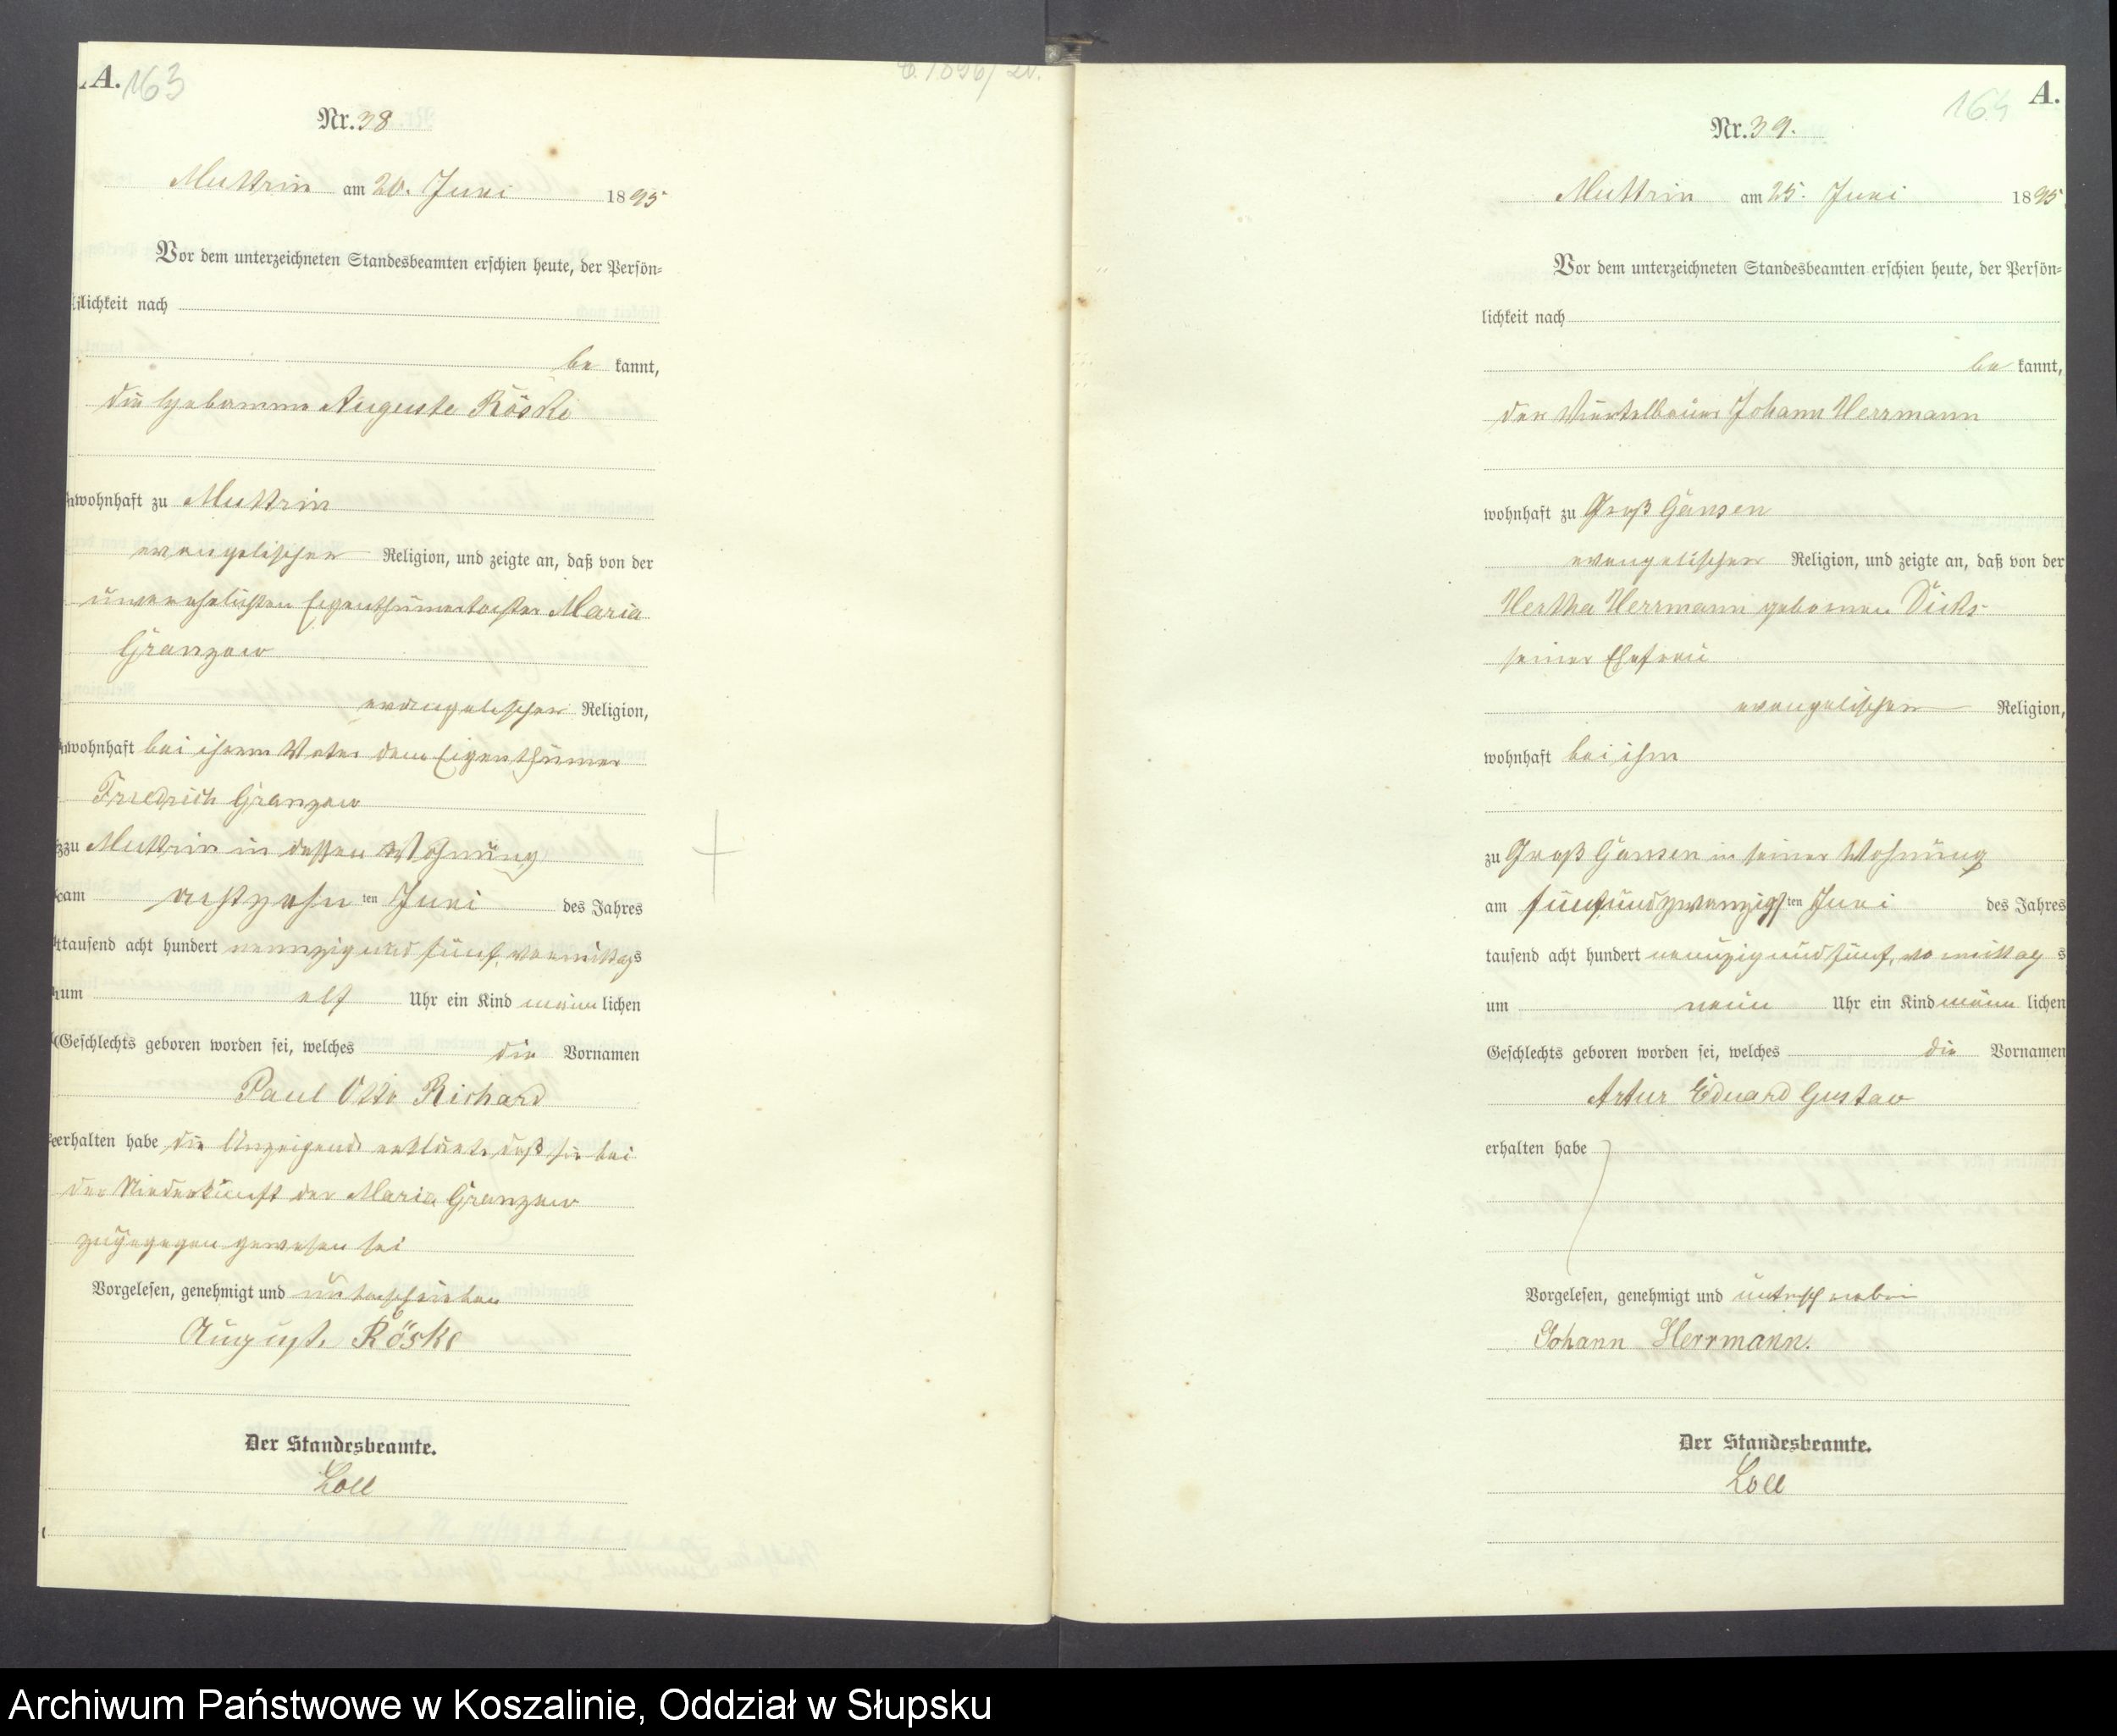 A. 163
Nr. 38
Muttrin am 20. Juni 1895
Vor dem unterzeichneten Standesbeamten erschien heute, der Persön-
lichkeit nach
be kannt,
die Hebamme Auguste Röske
wohnhaft zu Muttrin
evangelischer Religion, und zeigte an, daß von der
unverehelichten Eigenthümertochter Maria
Granzow
evangelischer Religion,
wohnhaft bei ihrem Vater dem Eigenthümer
Friedrich Granzow
zu Muttrin in dessen Wohnung
am achtzehn ten Juni des Jahres
tausend acht hundert neunzig und fünf, vormittags
um elf Uhr ein Kind männ lichen
Geschlechts geboren worden sei, welches die Vornamen
Paul Otto Richard
erhalten habe die Anzeigende erklärte, daß sie bei
der Niederkunft der Maria Granzow
zugegegen gewesen sei
Vorgelesen, genehmigt und unterschrieben
Auguste Röske
Der Standesbeamte.
Loll
A. 164
Nr. 39.
Muttrin am 25. Juni 1895
Vor dem unterzeichneten Standesbeamten erschien heute, der Persön-
lichkeit nach
be kannt,
der Viertelbauer Johann Herrmann
wohnhaft zu Groß Gansen
evangelischer Religion, und zeigte an, daß von der
Hertha Herrmann gebornen Dicks-
seiner Ehefrau
evangelischer Religion,
wohnhaft bei ihm
zu Groß Gansen in seiner Wohnung
am fünfundzwanzigs ten Juni des Jahres
tausend acht hundert neunzig und fünf, vormittag s
um neun Uhr ein Kind männ lichen
Geschlechts geboren worden sei, welches die Vornamen
Artur Eduard Gustav
erhalten habe
Vorgelesen, genehmigt und unterschrieben
Johann Herrmann.
Der Standesbeamte.
Loll
Archiwum Państwowe w Koszalinie, Oddział w Słupsku